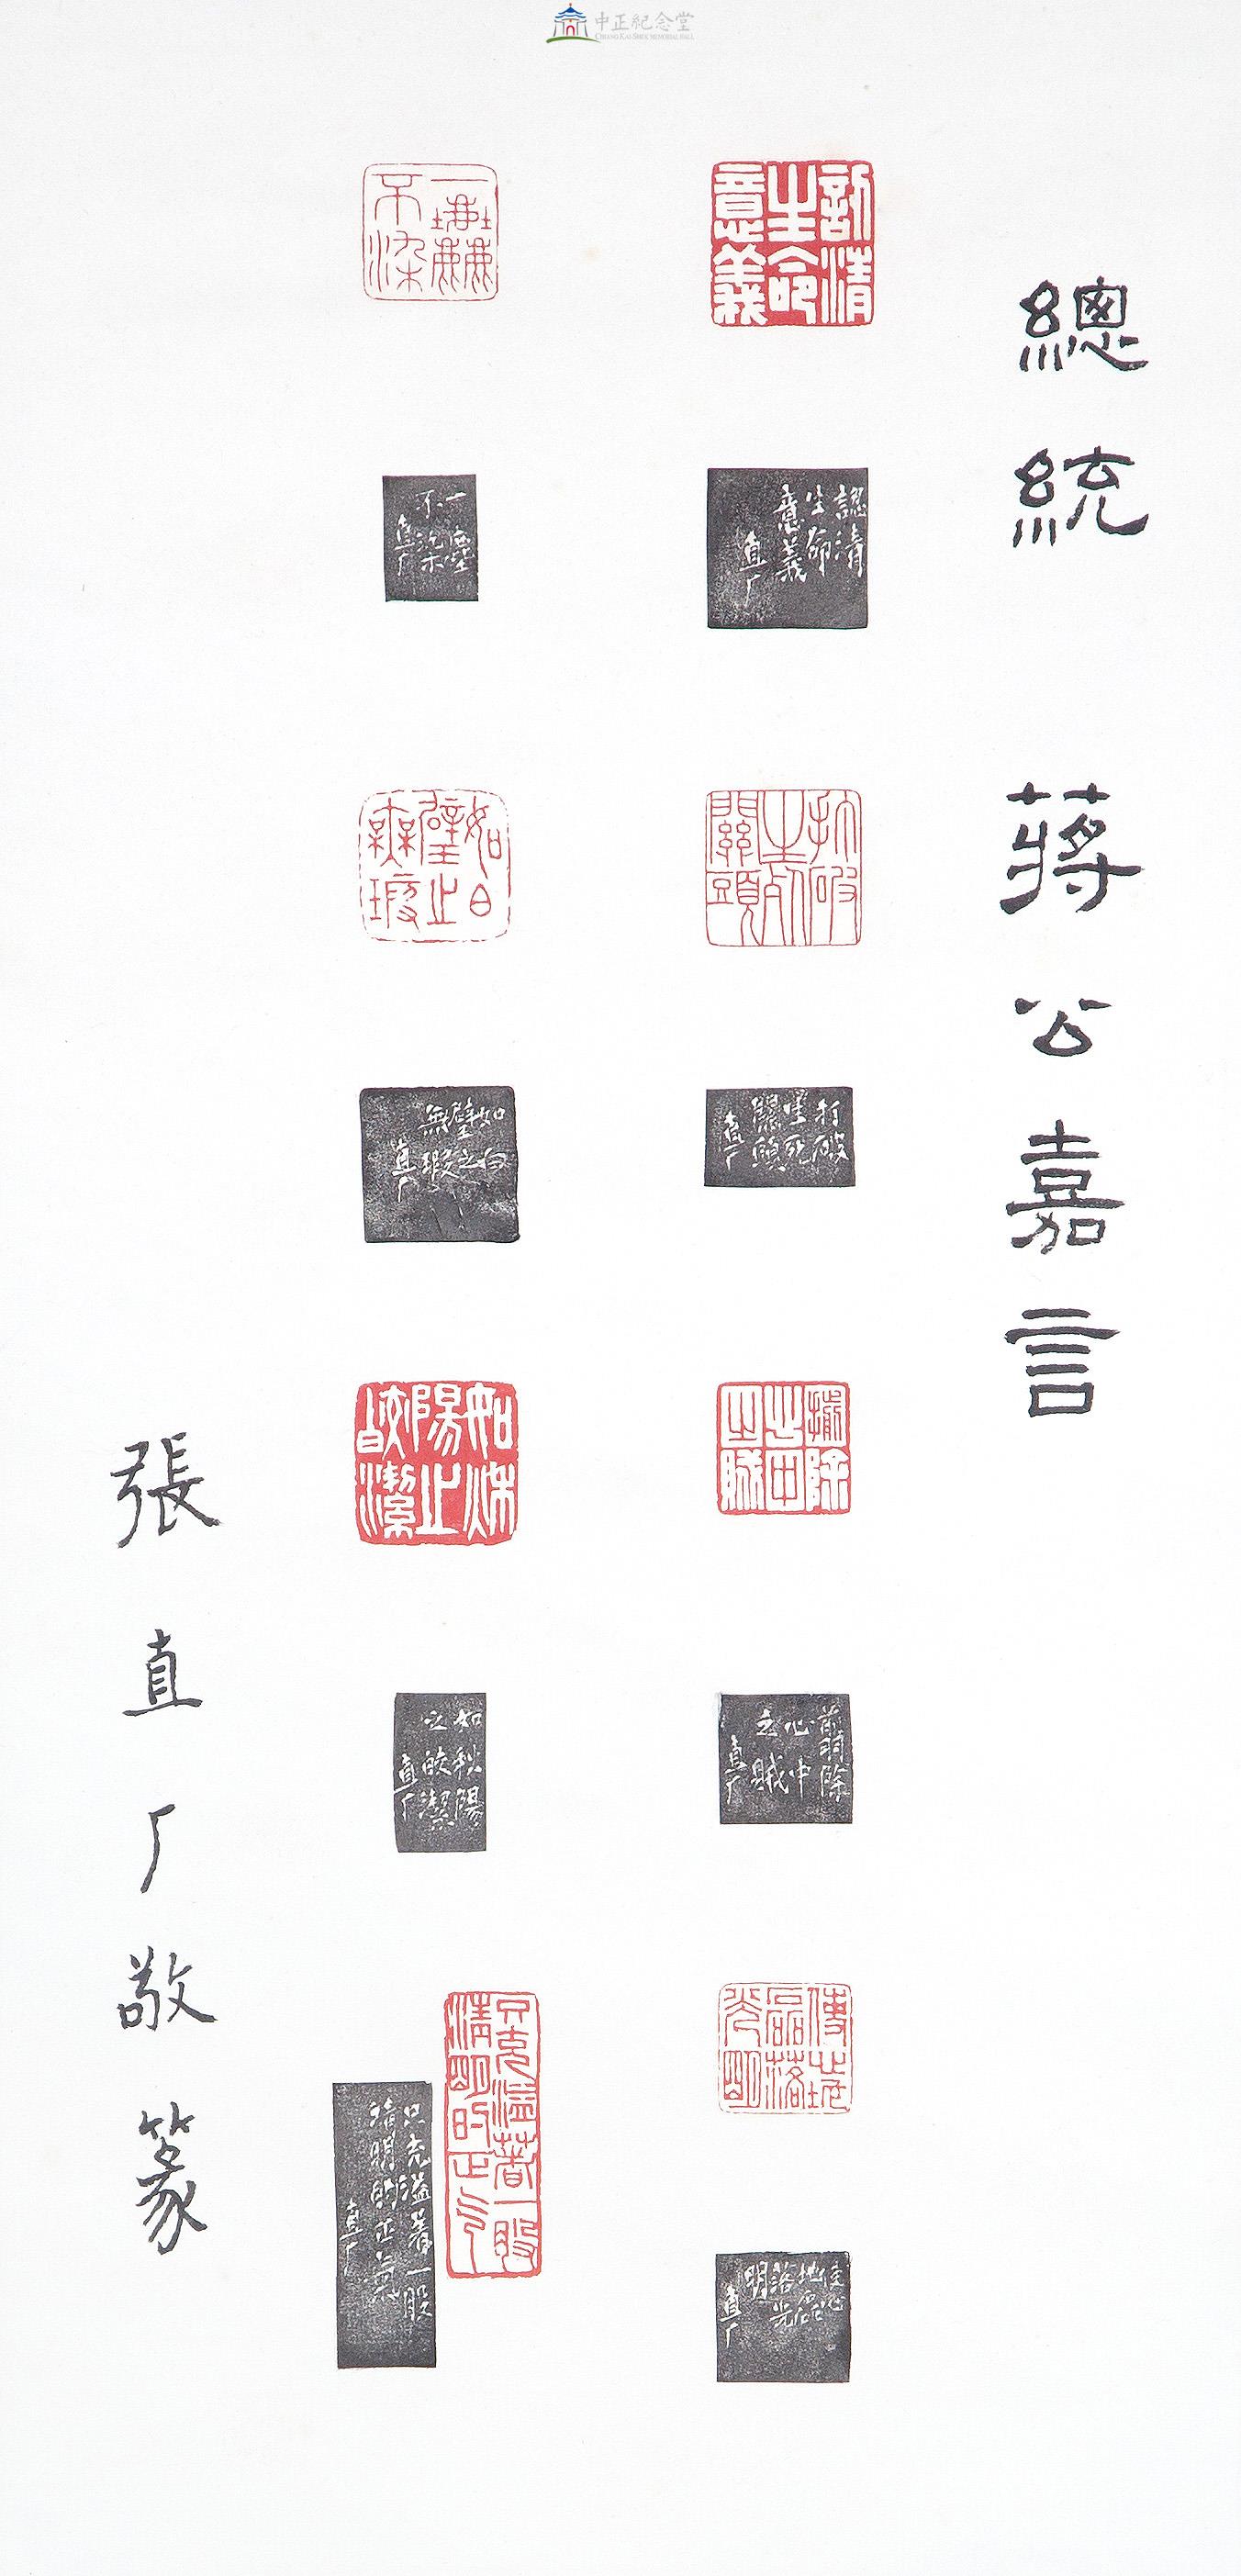 中正紀念堂
CHIANG KAI-SHEK MEMORIAL HALL
總統 蔣公嘉言
認清
生命
意義
認清
生命
意義
直厂
打破
生死
關頭
打破
生死
關頭
直厂
揃除
心中
之賊
前明除
心中
之賊
直厂
使心地
磊落
光明
直厂
一塵
不染
一塵
不染
直厂
如白
璧之
無瑕
如白
璧之
無瑕
直厂
如秋
陽之
皎潔
如秋陽
之皎潔
直厂
只充溢著一股
清明的正气
只充溢着一股
清明的正氣
直厂
張直厂敬篆